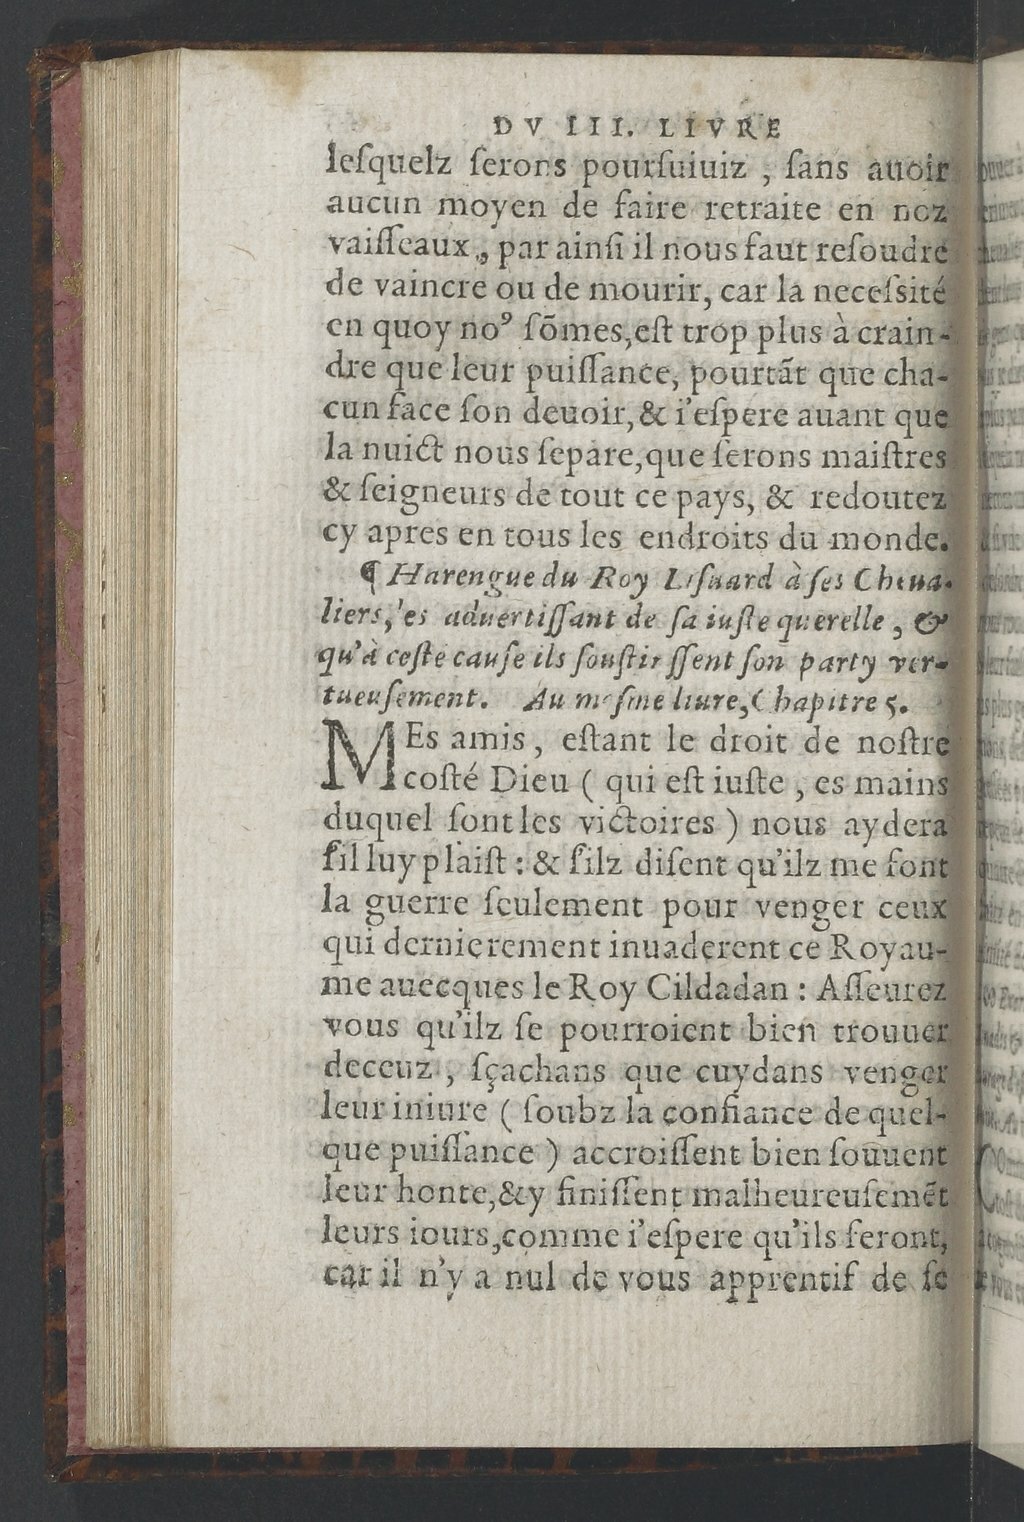 DV III. LIVRE
leſquelz ſerons pourſuiuiz , ſans auoir
aucun moyen de faire retraite en noz
vaiſſeaux , par ainſi il nous faut reſoudre
de vaincre ou de mourir, car la neceſsité
en quoy noꝰ ſõmes,eſt trop plus à crain-
dre que leur puiſſance, pourtãt que cha-
cun face ſon deuoir,& i'eſpere auant que
la nuict nous ſepare,que ſerons maiſtres
& ſeigneurs de tout ce pays, & redoutez
cy apres en tous les endroits du monde.
¶ Harengue du Roy Liſuard à ſes Cheua-
liers, les aduertiſſant de ſa iuſte querelle , &
qu'à ceſte cauſe ils ſouſtinſſent ſon party ver-
tueuſement. Au meſme liure,Chapitre 5.
MEs amis , eſtant le droit de noſtre
coſté Dieu ( qui eſt iuſte , es mains
duquel ſont les victoires ) nous aydera
ſil luy plaiſt : & ſilz diſent qu'ilz me font
la guerre ſeulement pour venger ceux
qui dernierement inuaderent ce Royau-
me auecques le Roy Cildadan : Aſſeurez
vous qu'ilz ſe pourroient bien trouuer
deceuz , ſçachans que cuydans venger
leur iniure ( ſoubz la confiance de quel-
que puiſſance ) accroiſſent bien ſouuent
leur honte,&y finiſſent malheureuſemẽt
leurs iours,comme i'eſpere qu'ils feront,
car il n'y a nul de vous apprentif de ſe